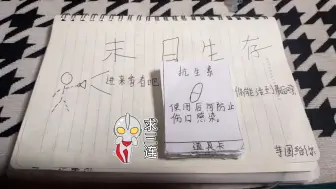 末日生存
进来看看吧
抗生素
使用后可防止
伤口感染。
道具卡
你能活到最后吗
求三连